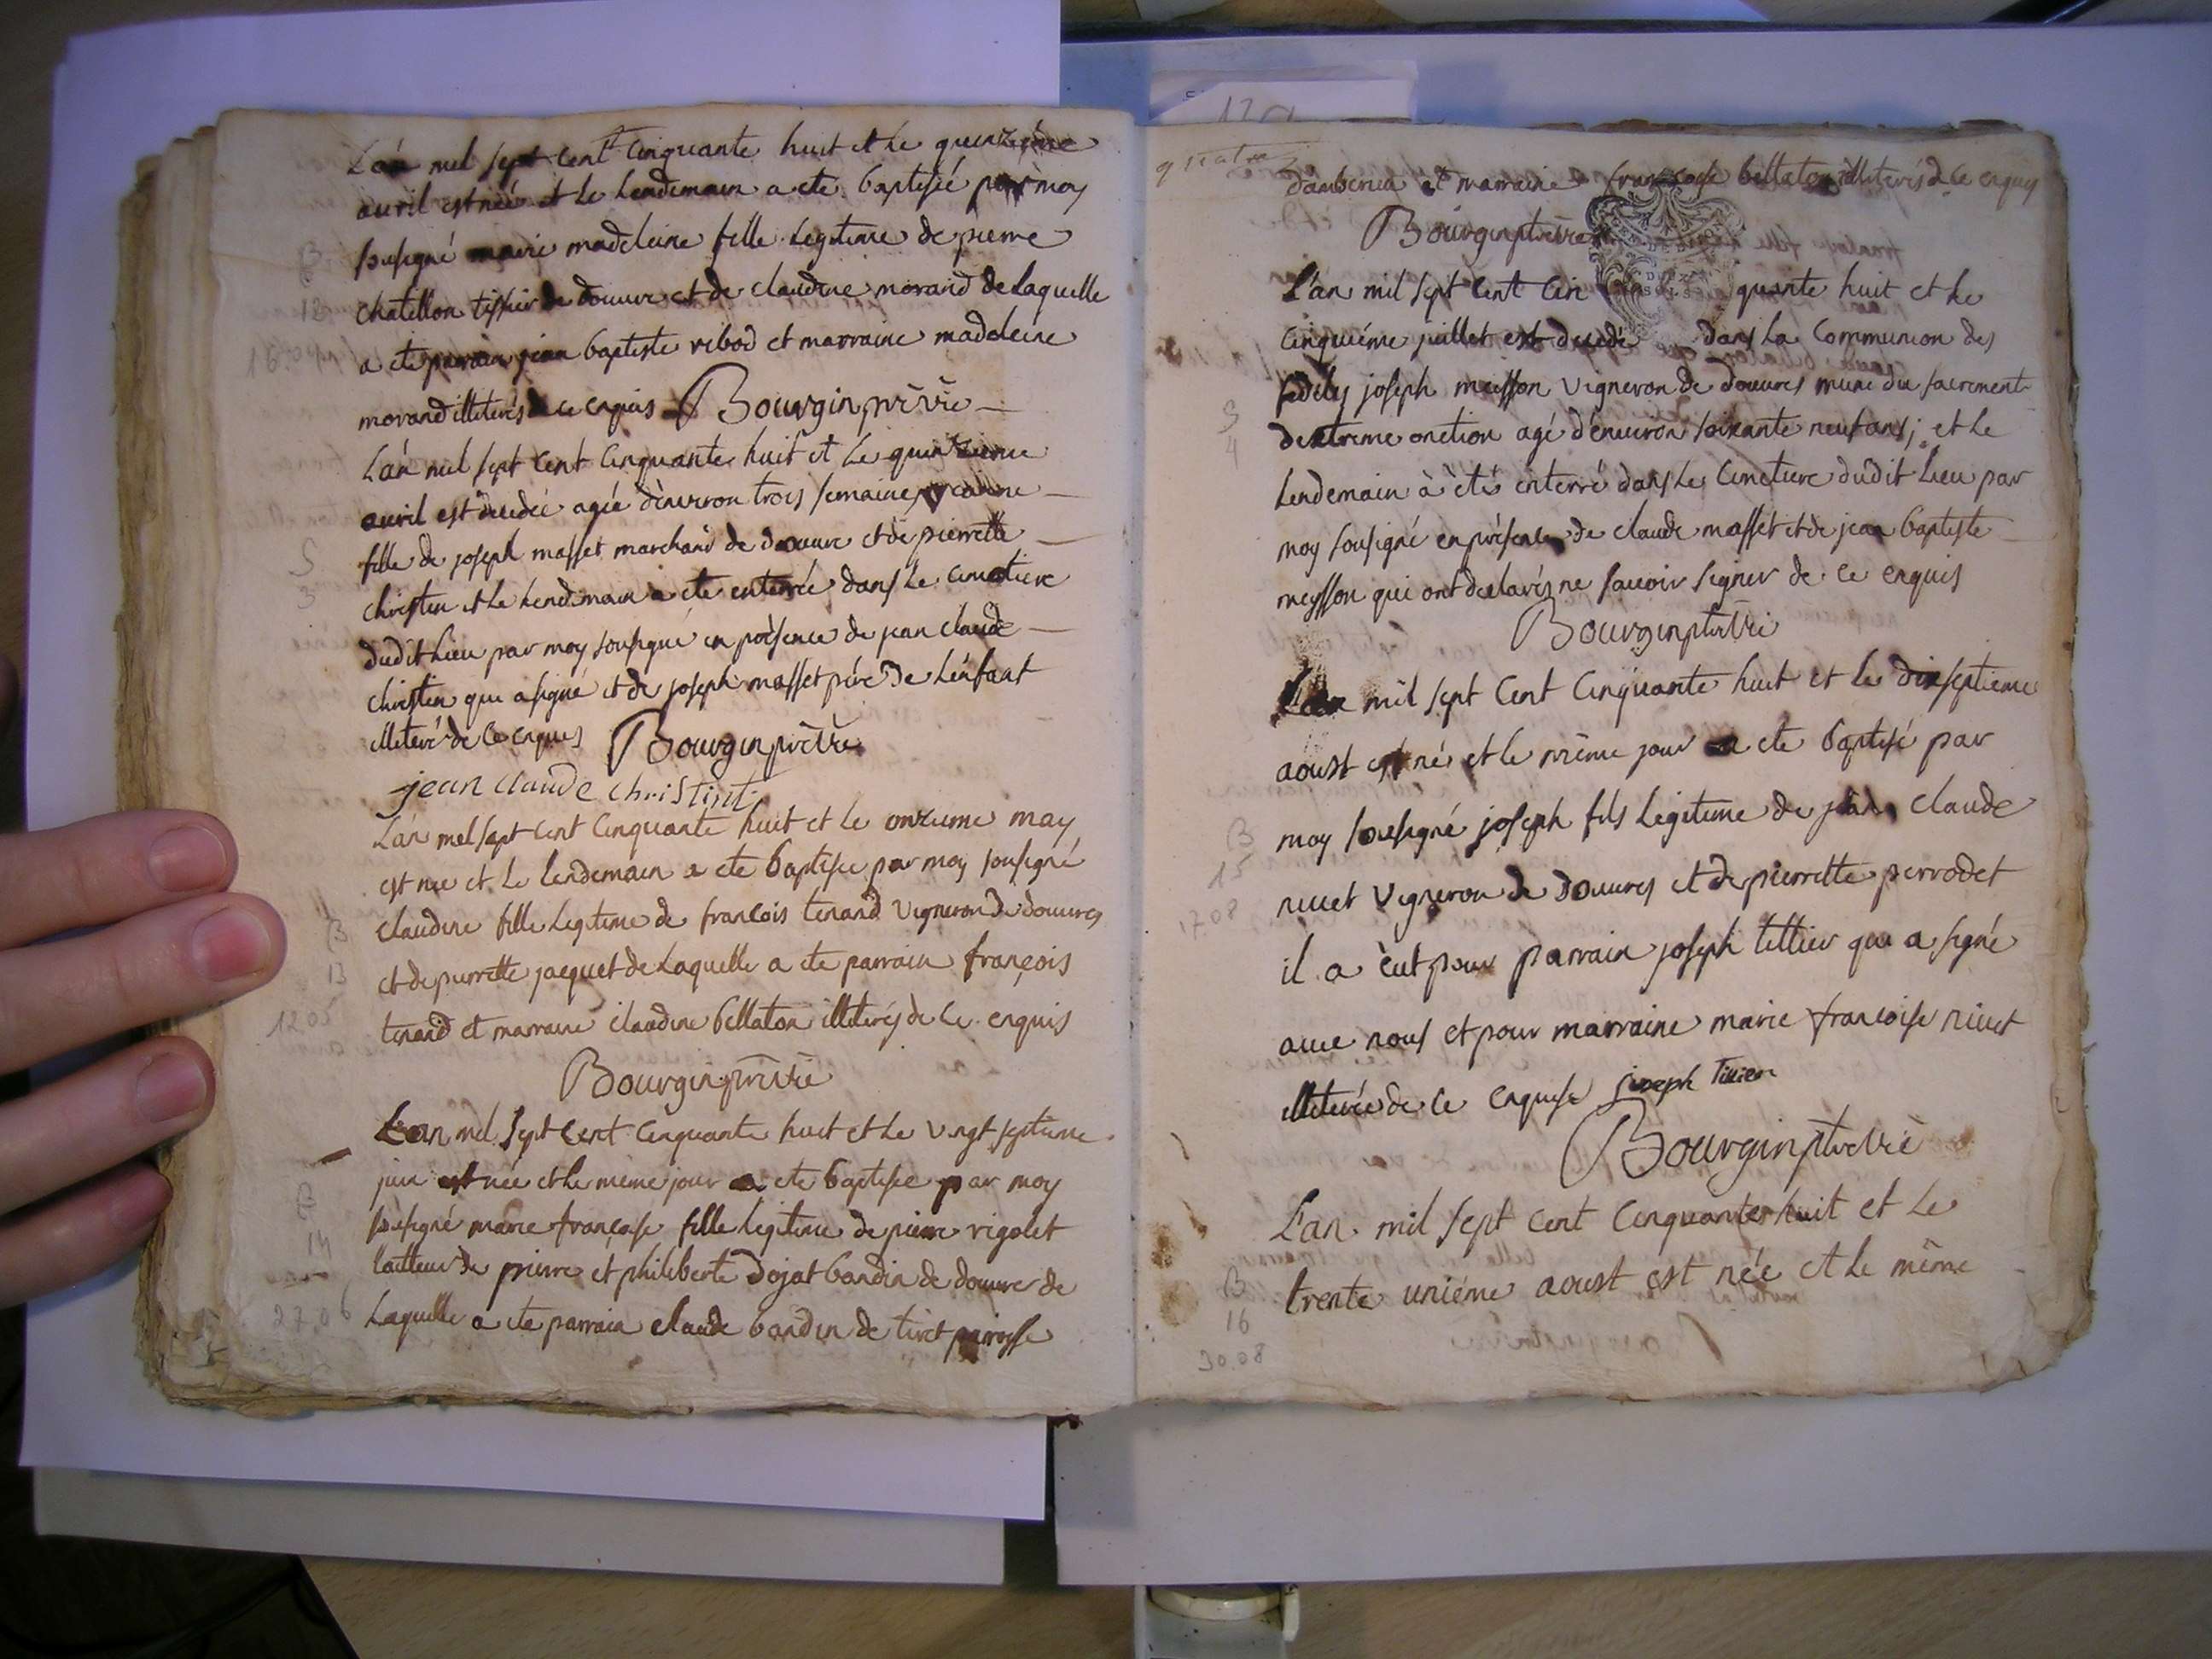 L'an mil sept cent cinquante huit et le quinzieme
avril est née et le lendemain a ete baptisée par moy
sousigné marie madeleine fille legitime de pierre
chatillon tissier de douvre et de claudine morand de laquelle
a ete parrain jean baptiste ribod et marraine madeleine
morand illiterés de ce enquis Bourgin prètre
L'an mil sept cent cinquante huit et le quinzieme
avril est decedée agée d'environ trois semaines jeanne
fille de joseph masset marchand de douvre et de pierrette
christin et le lendemain a ete enterrée dans le cimetiere
dudit lieu par moy sousigné en présence de jean claude
christin qui a signé et de joseph masset pére de l'enfant
illiteré de ce enquis Bourgin prètre
jean claude christint
L'an mil sept cent cinquante huit et le onzieme may
est nee et le lendemain a ete baptisee par moy sousigné
claudine fille legitime de francois tenand vigneron de douvres
et de pierrette jacquet de laquelle a ete parrain françois
tenand et marraine claudine bellaton illiterés de ce enquis
Bourgin prètre
L'an mil sept cent cinquante huit et le vingt septieme
juin est née et le même jour a ete baptisee par moy
sousigné marie francoise fille legitime de pierre rigolet
tailleur de pierre et philiberte dojat bandin de douvre de
laquelle a ete parrain claude bandin de tiret paroisse
B
12
16.04
S
3
B
13
12.05
B
14
27.06
quatre
d'amberieu et marraine francoise bellaton illiterés de ce enquis
Bourgin ptretre
L'an mil sept cent cin quante huit et le
cinquiéme juillet est decedé dans la communion des
fidelles joseph meysson vigneron de douvres muni du sacrement
d'extreme onction agé d'environ soixante neuf ans; et le
lendemain à èté enterré dans le cimetiere dudit lieu par
moy sousigné en présence de claude masset et de jean baptiste
meysson qui ont declarés ne savoir signer de ce enquis
Bourgin ptretre
L'an mil sept cent cinquante huit et le dix septieme
aoust est né et le même jour a ete baptisé par
moy sousigné joseph fils legitime de jean claude
nivet vigneron de douvres et de pierrette perrodet
il a èut pour parrain joseph tettier qui a signé
avec nous et pour marraine marie francoise nivet
illiterée de ce enquise joseph
Bourgin ptretre
L'an mil sept cent cinquante huit et le
trente uniéme aoust est née et le même
S
4
B
15
17.08
B
16
30.08